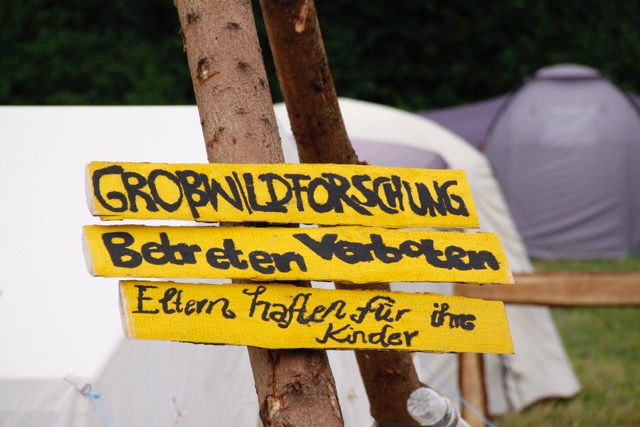 GROßWILDFORSCHUNG
Betreten Verboten
Eltern haften für ihre
Kinder